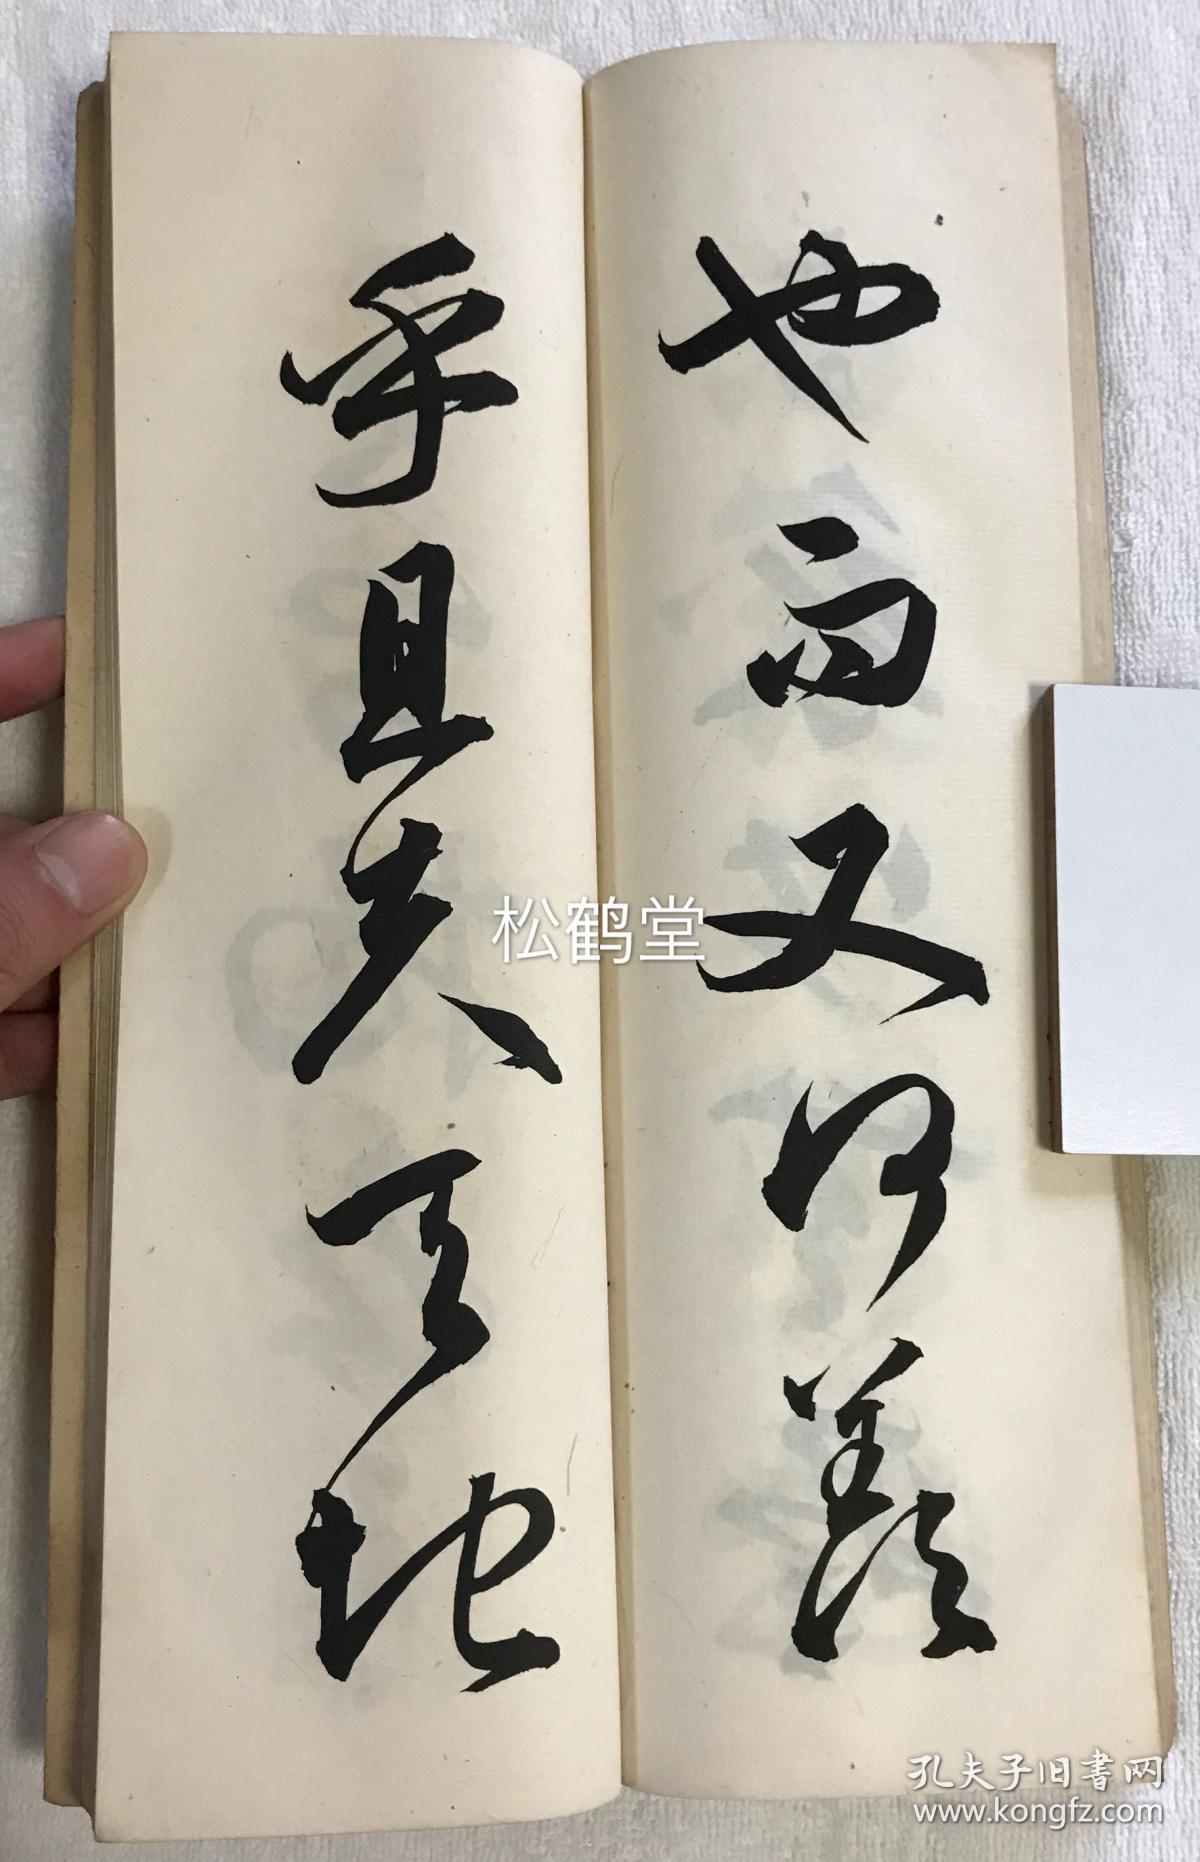 也而又何羨
乎且夫天地
松鹤堂
孔夫子旧書网
www.kongfz.com